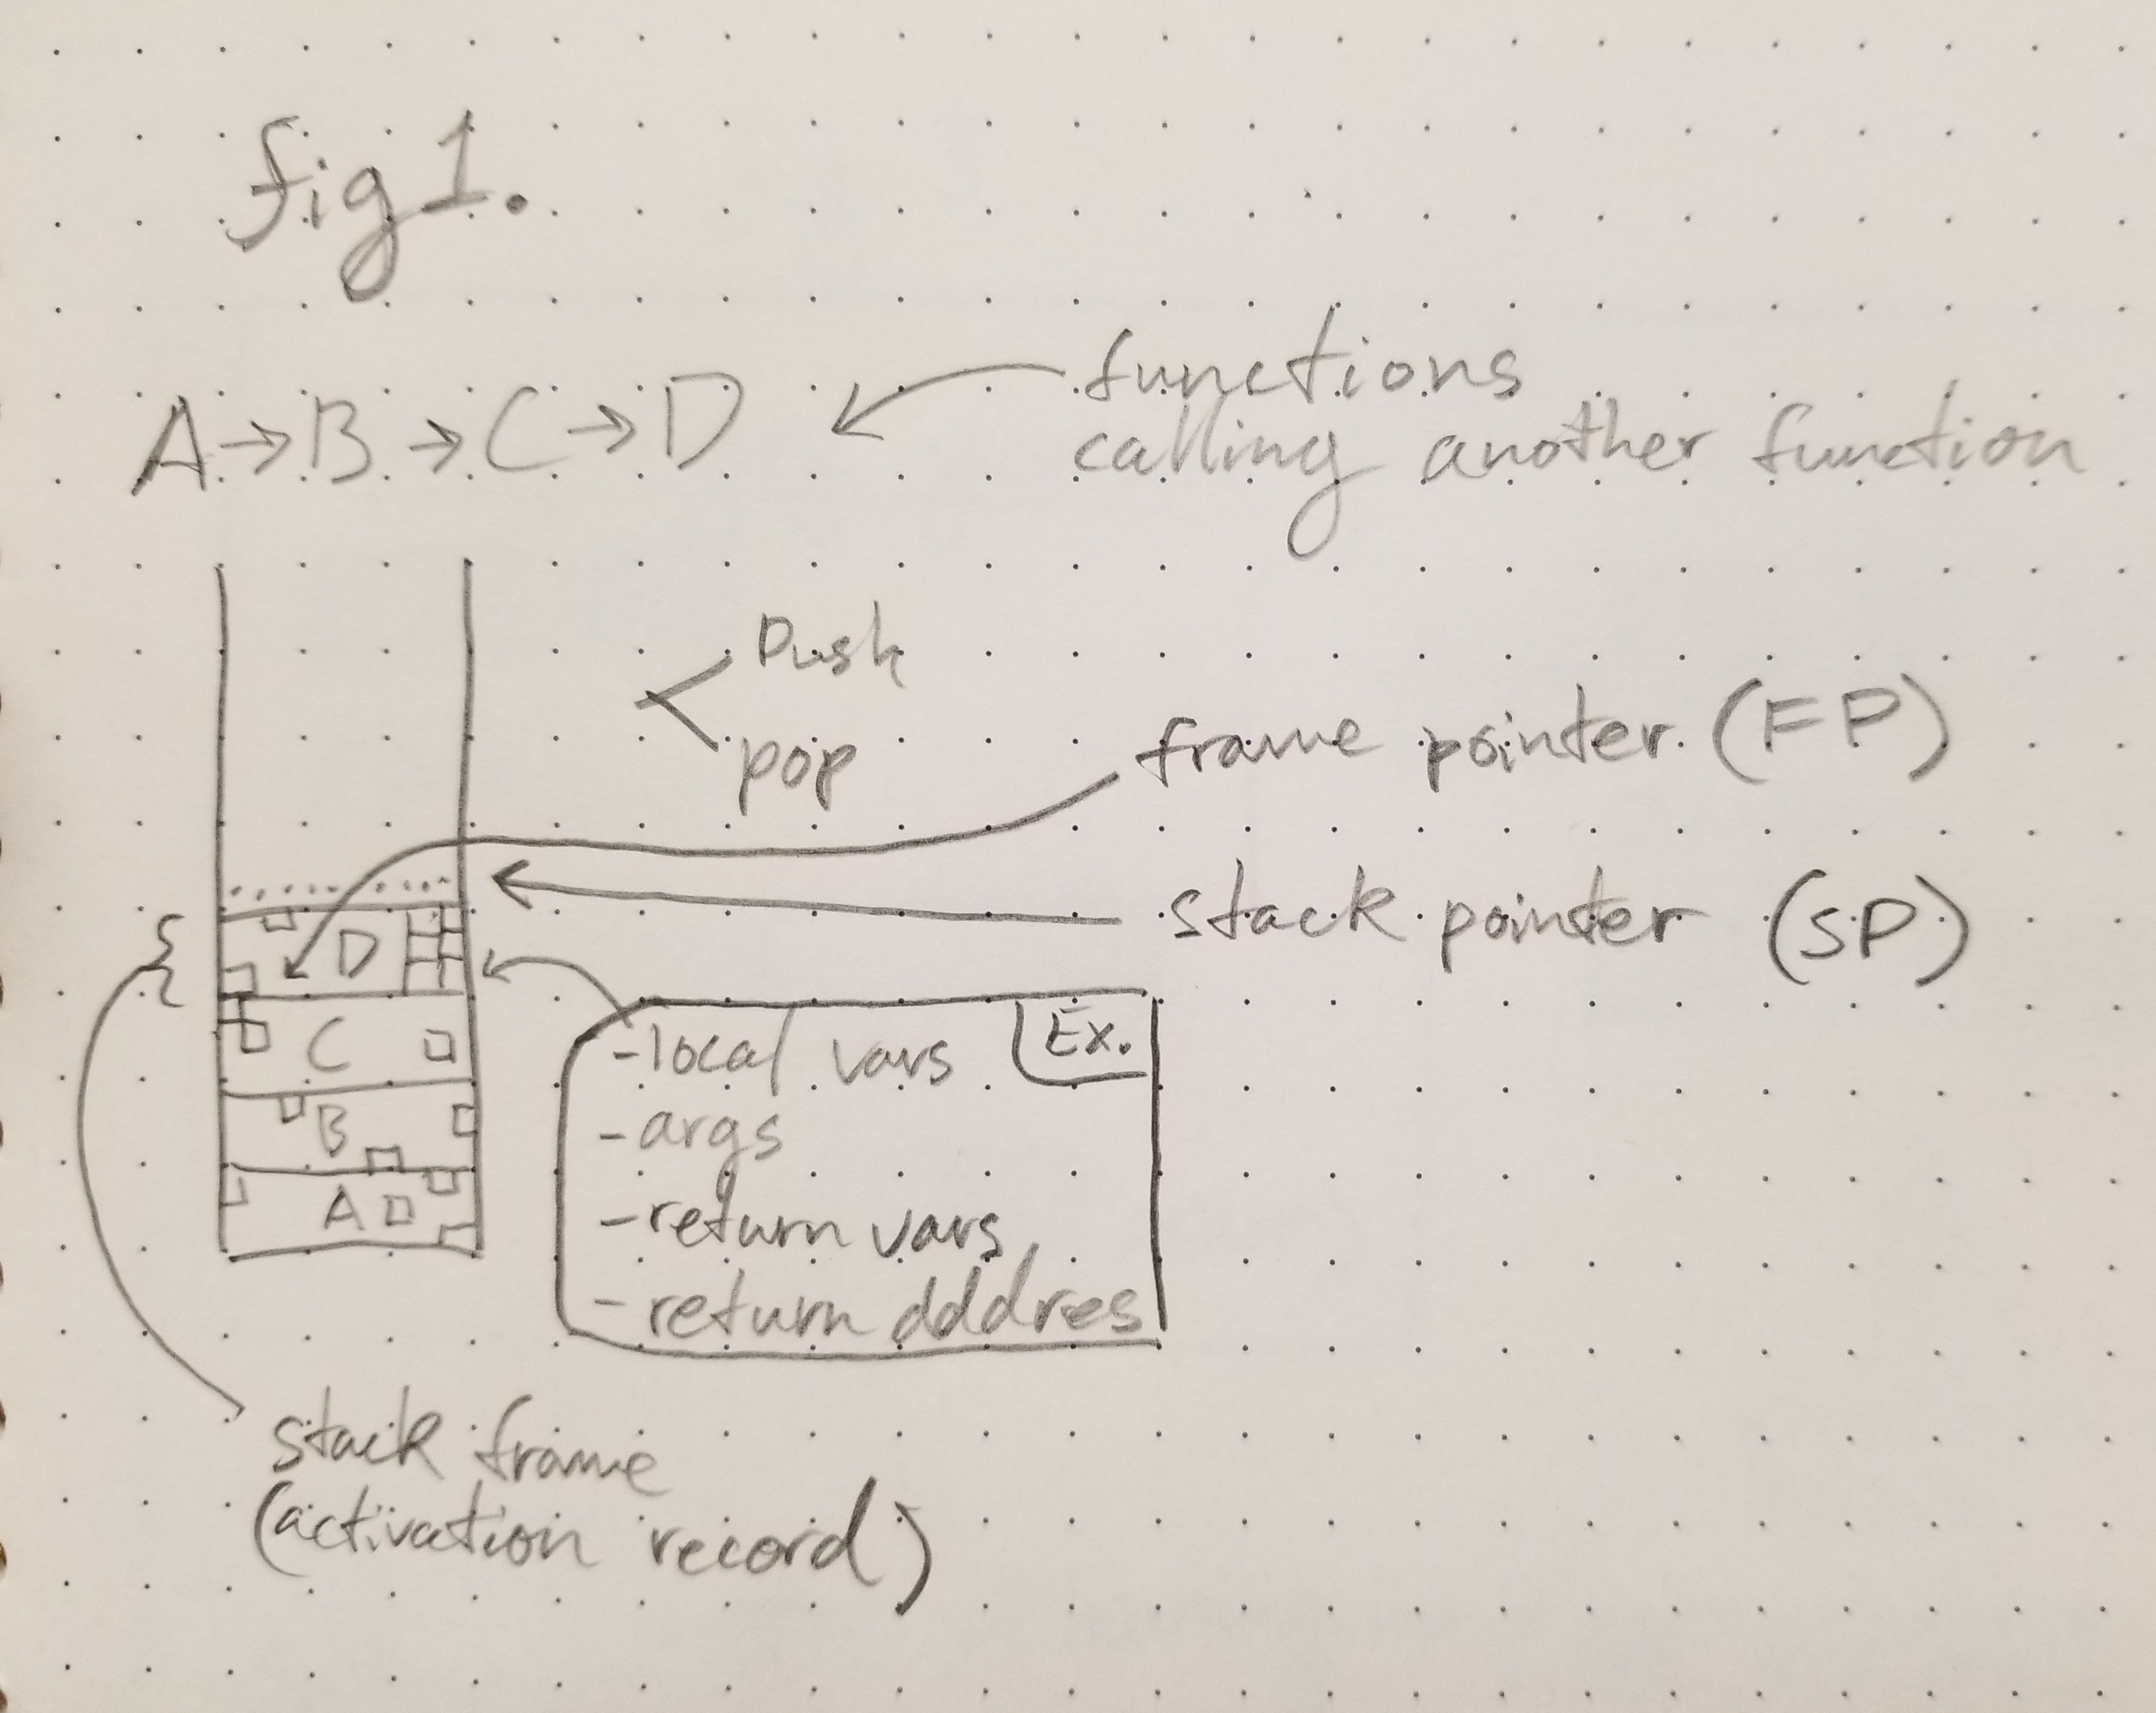 fig 1.
A → B → C → D
functions
calling another function
Push
pop
frame pointer (FP)
stack pointer (SP)
D
C
B
A
Ex.
- local vars
- args
- return vars
- return dddres
stack frame
(activation record)